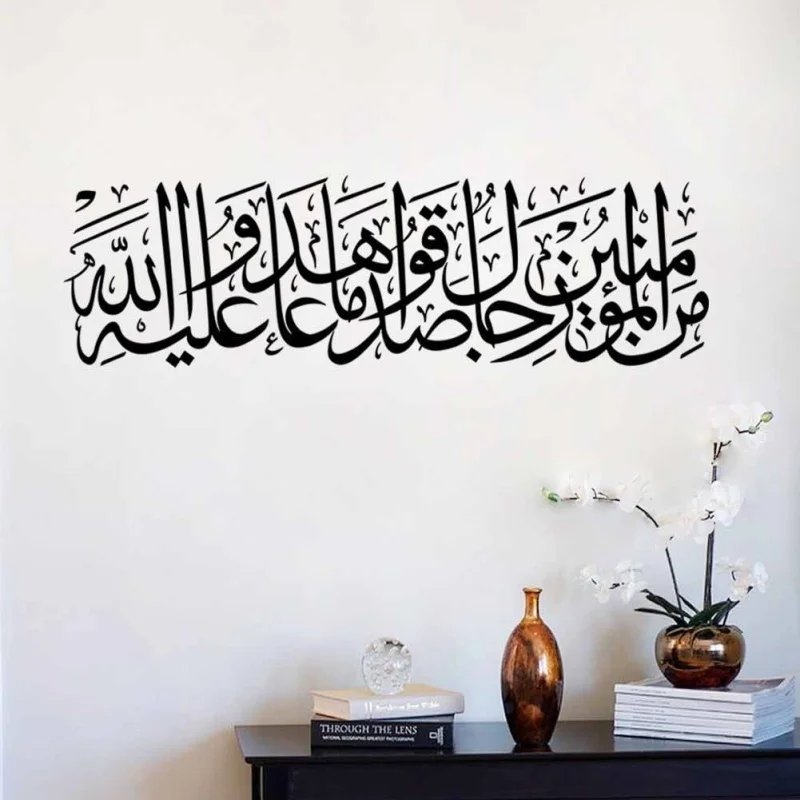 من المؤمنين رجال صدقوا ما عاهدوا الله عليه
THROUGH THE LENS
NATIONAL GEOGRAPHIC GREATEST PHOTOGRAPHS